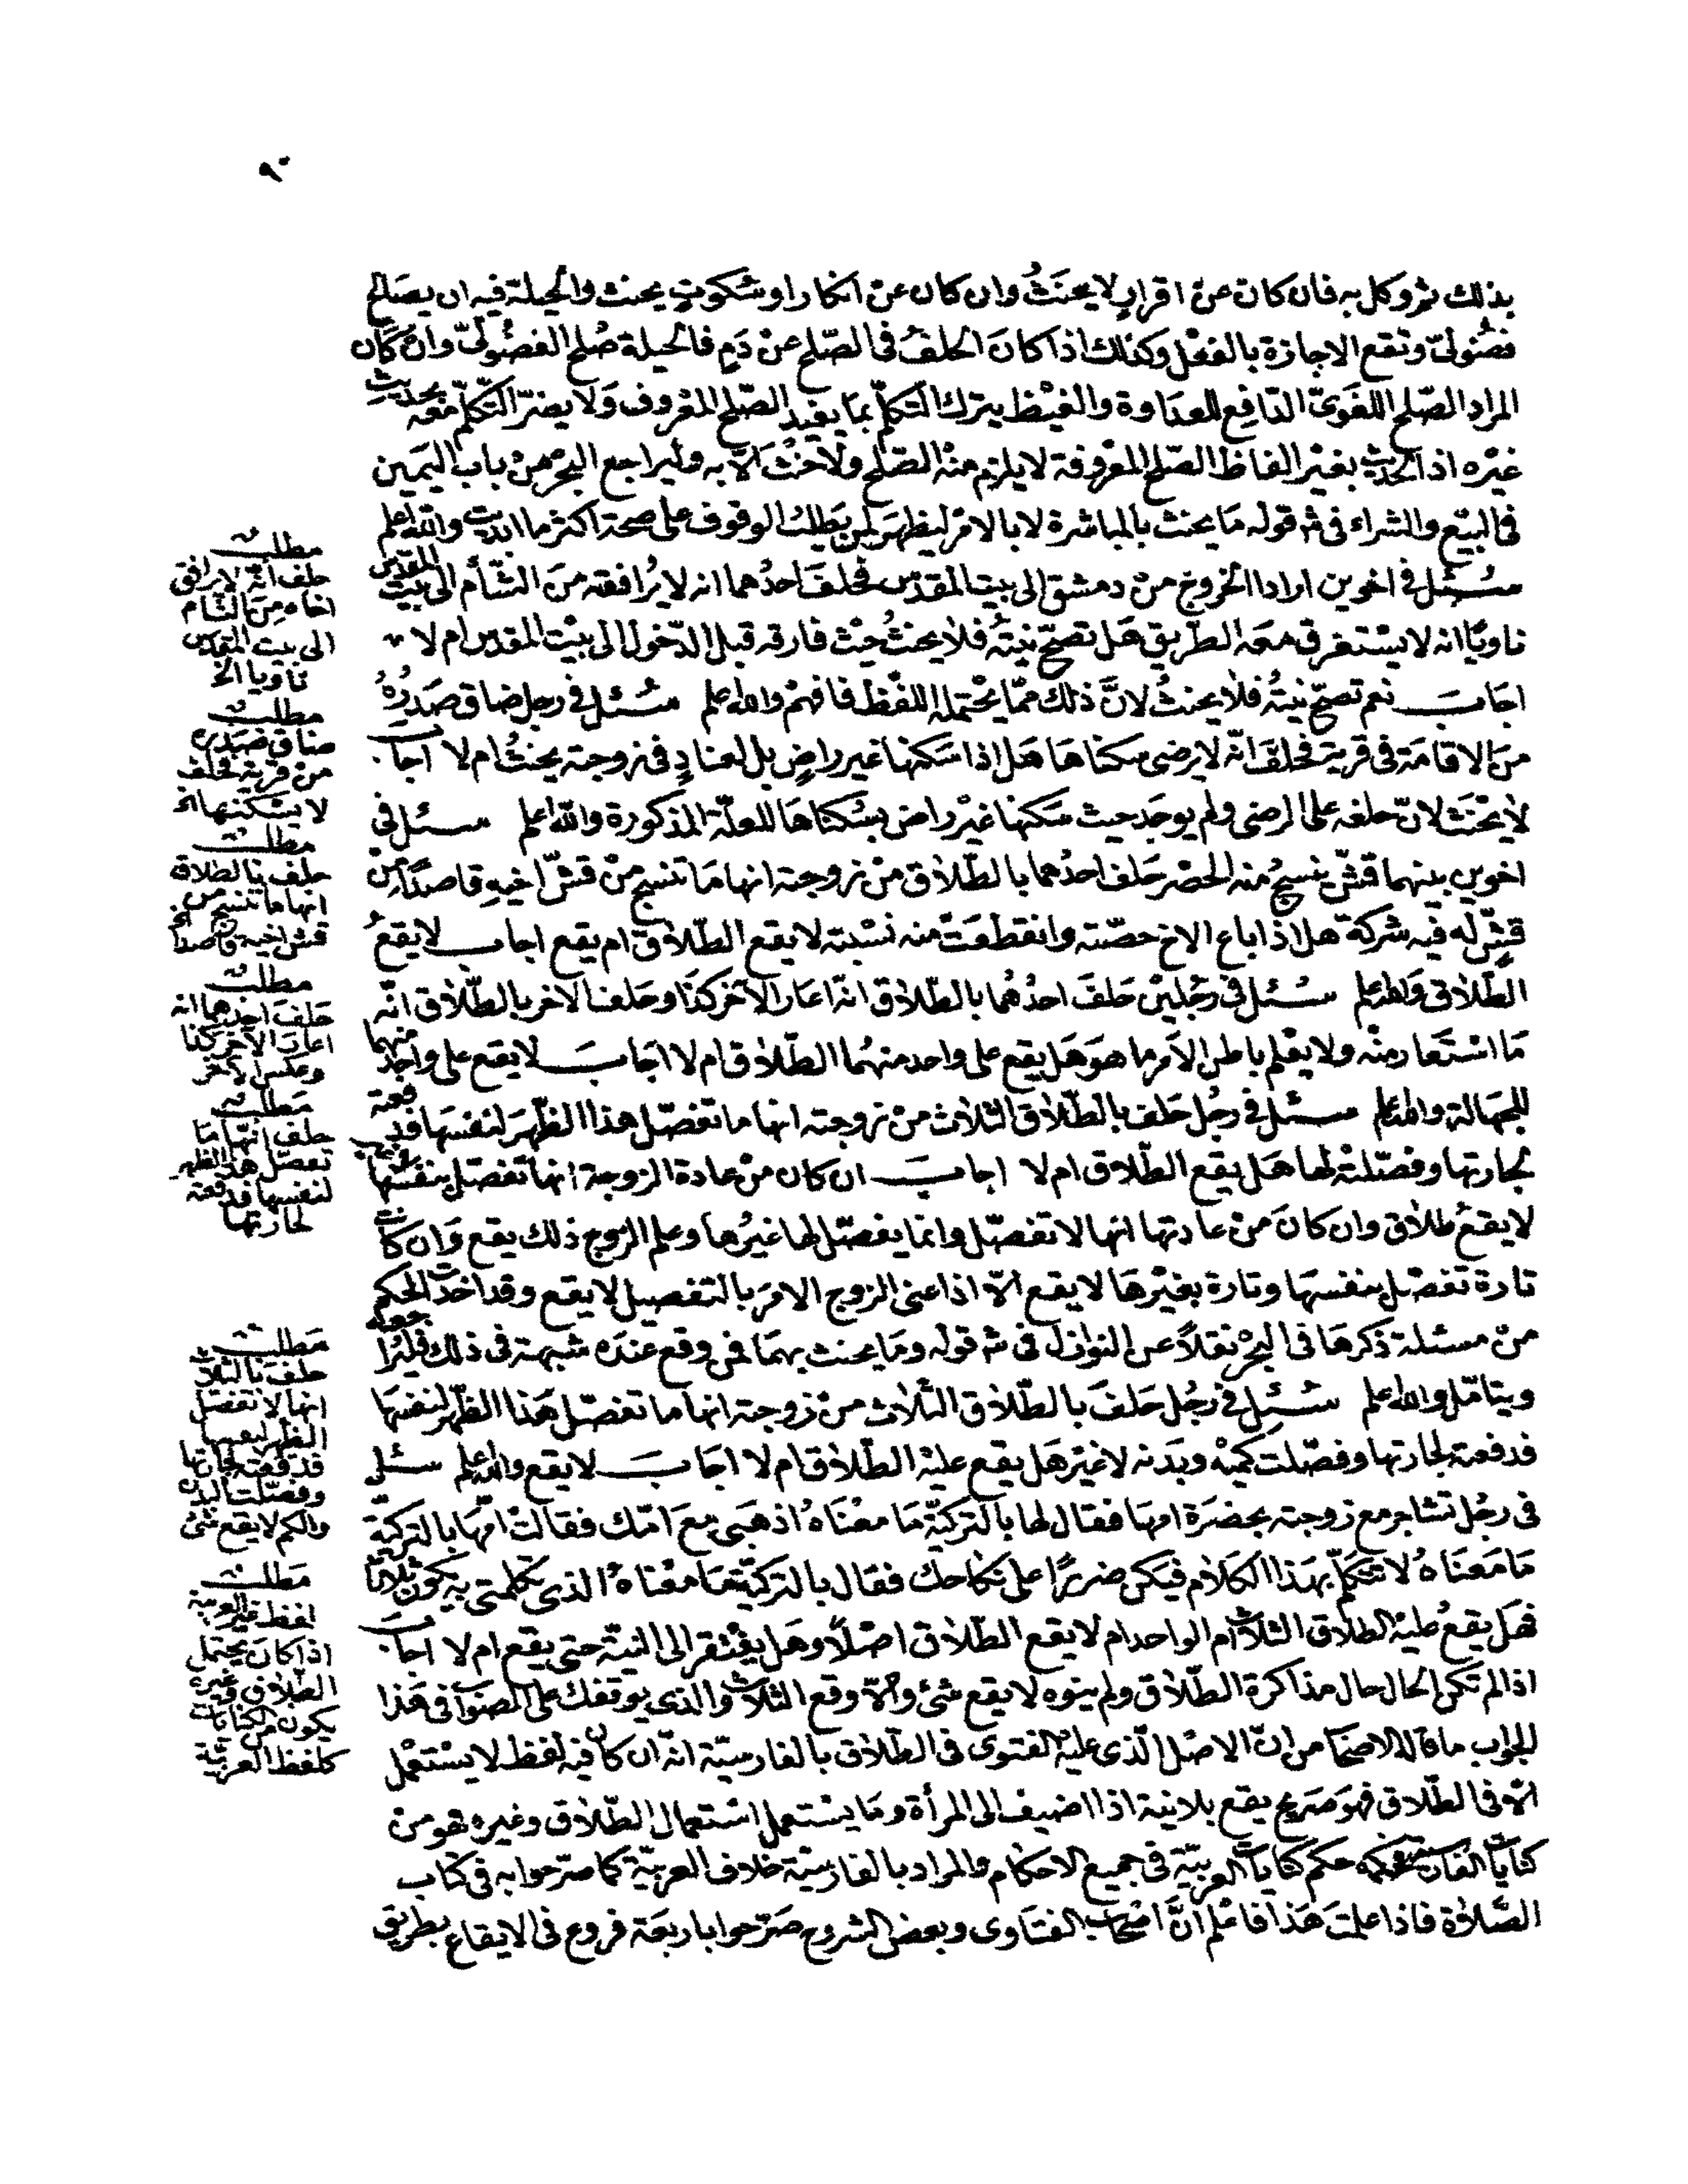 ٩٠
بذلك ثم وكل به فان كان عن اقرارٍ لا يحنَثُ وان كان عن انكار او سكوتٍ يحنث والحيلة فيه ان يصَالح
فضُولىّ وتقع الاجازة بالفعْل وكذلك اذا كانَ الحلفُ فى الصّلح عنْ دَمٍ فالحيلة صُلح الفضُولىّ وان كَان
المراد الصّلح اللغَوىّ الدّافِع للعدَاوة والغيْظ يترك التّكلّم بمَا يفيد الصّلح المعْروف وَلا يضرّ التّكلّم معَه بحديثِ
غيْره اذ الحديث بغيْر الفاظ الصّلح المعْروفة لا يلزم منهْ الصّلح ولَا حنْث الّا به وليراجع البحْر منْ باب اليَمين
فى البيْع والشراء فى شرح قوله مَا يحنث بالمباشرة لا بالامْر ليظهرَ لمن يَطلبُ الوقوف على صحة اكثر ما ابديت والله اعلم
سُئل فى اخوين ارادا الخروج منْ دمشق الى بيت المقدس فحلفَ احدُهما انه لا يُرافقه منَ الشّام الى بيْت المقدّس
ناويًا انه لا يسْتغرق معَه الطّريق هَل تصحّ نيتهُ فلا يحنثُ حيْث فارقه قبل الدّخول الى بيْت المقدس ام لا
اجَابَ نعم تصحّ نيتُه فلا يحنثُ لانَّ ذلك ممّا يحْتمله اللفْظ فافهمْ والله اعلم سُئل فى رجل ضاق صَدرُهُ
منَ الاقامَة فى قرية فحلَفَ انّه لا يرضى سكناهَا هَل اذا سَكنها غير راضٍ بل لعنادٍ فى زوجته يحنثُ ام لا اجابَ
لا يحْنَث لانّ حلفه على الرضى ولم يوجَد حيث سَكنها غيْر راض بسُكناهَا للعلّة المذكورة والله اعلم سئل فى
اخوين بينهما قشّ ينسجُ منه الحصْر حَلف احدُهما بالطّلاق منْ زوجته انها مَا تنسج منْ قشّ اخيهِ قاصدًا من
قشٍّ له فيه شركة هل اذا باع الاخ حصّته وانقطعَتْ منه نسْبته لا يقع الطّلاق ام يقع اجاب لا يقعُ
الطّلاق والله اعلم سُئل فى رجُليْن حَلفَ احدُهُما بالطّلاق انّه اعَار الآخر كذَا وحَلف الاخر بالطّلاق انّه
مَا اسْتعَار منْه ولا يعْلم باطن الاَمر ما هوَ هَل يقع على واحد منهُما الطّلاق ام لا اجَابَ لا يقع على واحد منهما
للجهَالة والله اعلم سئل فى رجُل حَلف بالطّلاق الثلاث منْ زوجته انها ما تفصّل هذا الظّهرَ لنفسهَا فدفعته
لجارتها وفصّلتهْ لها هَل يقع الطّلاق ام لا اجابَ ان كان منْ عادة الزوجة انها تفصّل بنفسها
لا يقعُ طلاق وان كانَ منْ عادتها انها لا تفصّل وانما يفصّل لها غيرُها وعلم الزوج ذلك يقع وَان كانت
تارة تفصّل بنفسهَا وتارة بغيْرهَا لا يقع الّا اذا عنى الزوج الامرَ بالتفصيل لا يقع وقد اخذت الحكم
منْ مسئلة ذكرهَا فى البحْر نقلًا عن النوازل فى شرح قوله ومَا يحنث بهمَا فمن وقع عندَه شبهة فى ذلك فليُراجعه
ويتامّل والله اعلم سُئل فى رجُل حَلفَ بالطّلاق الثلاث منْ زوجته انها ما تفصّل هَذا الظّهر لنفسَهَا
فدفعته لجارتها وفصّلت كمّيْه وبَدَنه لا غيْر هَل يقع عليْه الطّلاق ام لا اجَابَ لا يقع والله اعلم سئل
فى رجُل تشاجر مع زوجته بحضرَة امهَا فقال لها بالتركيّة مَا معْنَاهُ اذهبى معَ امّك فقالتْ امّهَا بالتركيّة
مَا مَعنَاهُ لا تتكلّم بهَذا الكَلام فيكن ضررًا على نكاحك فقال بالتركيّة مَا معْناهُ الذى تكلمتى به يكون ثلاثا
فهَل يقعُ عليْه الطلاق الثلاث ام الواحد ام لا يقع الطّلاق اصْلًا وهَل يفْتقر الى النيّة حتى يقع ام لا اجابَ
اذا لم تكن الحال حال مذاكرة الطّلاق ولم ينوه لا يقع شئ والّا وقع الثلاث والذى يوقفك على الصَواب فى هَذا
الجوَاب ما قاله الاصحاب من انّ الاصْل الّذى عليْه الفتوى فى الطّلاق بالفارسيّة انّه ان كان فيه لفظ لا يسْتعْمل
الّا فى الطّلاق فهوَ صَريح يقع بلا نية اذا اضيف الى المرأة ومَا يسْتعمل اسْتعمال الطّلاق وغيره فهو منْ
كنايَات الفارسيّة فحكمه حكم كنايات العربيّة فى جميع الاحكام والمراد بالفارسيّة خلاف العربيّة كما صرّحوا به فى كتاب
الصّلاة فاذا علمتَ هَذا فاعْلم انَّ اصْحَاب الفتَاوى وبعض الشروح صَرّحوا باربعَة فروع فى الايقاع بطريق
مطلب
حلف انّه لا يرافق
اخاه منَ الشّام
الى بيت المقدس
ناويا الخ
مطلب
ضاق صَدره
منْ قرية فحلف
لا يسْكنها الخ
مطلب
حلف بالطلاق
انها ما تنسج من
قش اخيه قاصدا الخ
مطلب
حَلفَ احدهما انه
اعارَ الآخر كذا
وعكس الآخر
مَطلب
حلف انّها مَا
تفصّل هذا الظهر
لنفسها فدفعته
لجارتها
مَطلب
حلفَ بالثلاث
انها لا تفصّل
الظهر لنفسها
فدفعته لجارتها
وفصّلت البدن
والكم لا يقع شئ
مَطلب
لفظ غير العربية
اذا كانَ يحتمل
الطلاق وغيره
يكون من الكنايات
كلفظ العربيّة